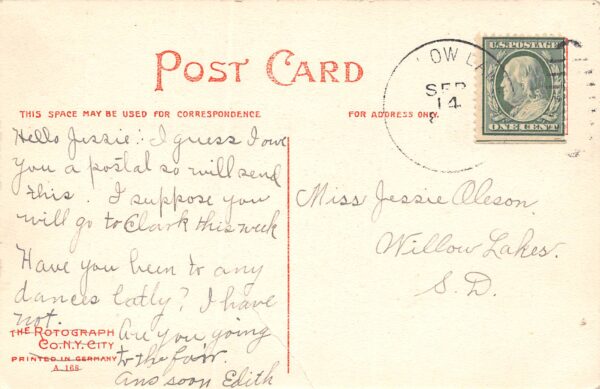 POST CARD
THIS SPACE MAY BE USED FOR CORRESPONDENCE
FOR ADDRESS ONLY.
U.S. POSTAGE
ONE CENT
SEP
14
8
Hello Jessie: I guess I owe
you a postal so will send
this. I suppose you
will go to Clark this week
Have you been to any
dances latly? I have
not. Are you going
to the fair.
Ans soon Edith
Miss Jessie Oleson.
Willow Lakes.
S.D.
THE ROTOGRAPH
CO. N.Y. CITY
PRINTED IN GERMANY
A 168